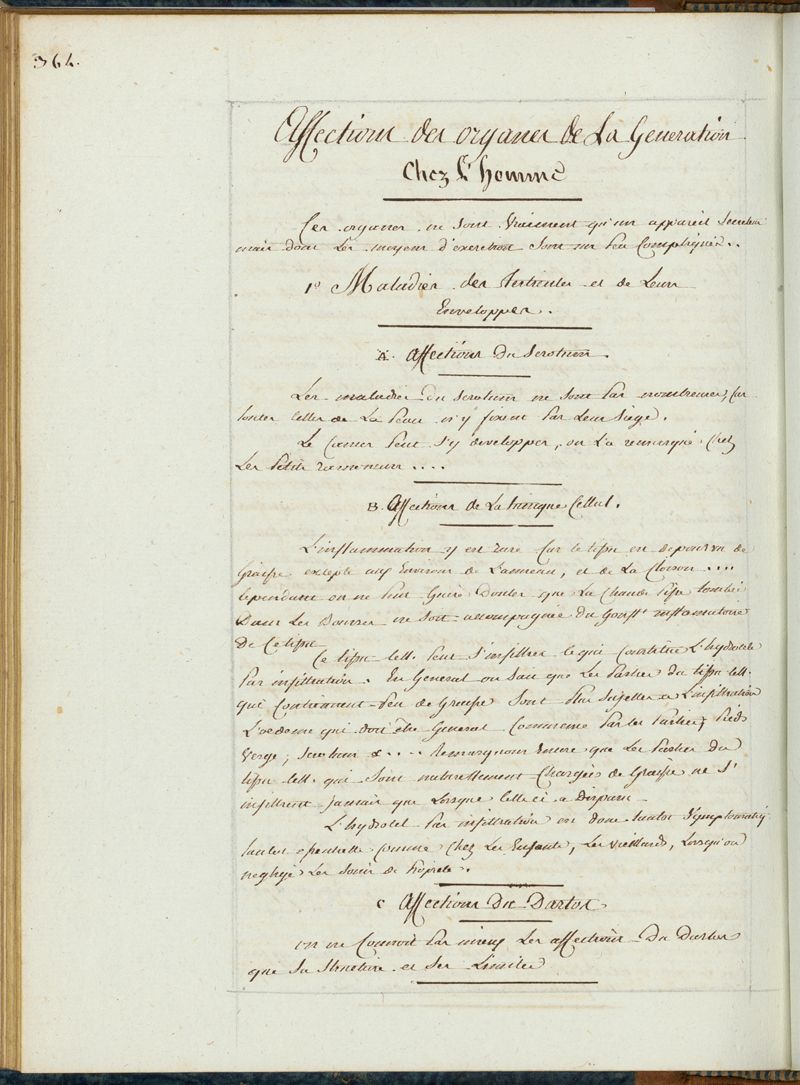 364.
Affections des organes de La Generation
Chez L'homme
Ces organes ne sont vraiment qu'un appareil secreteur
mais dont Les moyens d'excretion sont un peu Compliqués..
1º Maladies des Testicules et de Leurs
Enveloppes.
A. Affections du Scrotum.
Les maladies du scrotum ne sont pas nombreuses, Car
toutes celles de La peau n'y fixent pas Leur siège.
Le Cancer peut s'y développer, on L'a remarqué Chez
Les petits ramoneurs ....
B. Affections de La tunique Cellul.
L'inflammation y est rare Car le tissu en depourvu de
Graisse excepté aux Environs de L'anneau, et de La Cloison ....
Cependant on ne peut Guère Douter que La Chaude pisse tombée
Dans Les Bourses ne soit accompagnée du Gonflt inflammatoire
De Ce tissu
Ce tissu cell. peut s'infiltrer ce qui Constitue L'hydrocele
par infiltration. En General on sait que Les parties du tissu cell.
qui Contiennent peu de Graisse sont plus sujettes à L'infiltration
L'oedeme qui doit être General Commence par les parties, pieds
verge, scrotum &.... Remarquons encore que Les parties du
tissu cell. qui sont naturellement Chargées de Graisse ne s'
infiltrent jamais que Lorsque celle ci a disparu
L'hydrocel par infiltration est donc tantot Symptomatiq
tantot essentielle comme Chez Les Enfants, Les vieillards, Lorsqu'on
neglige Les soins de propreté.
C Affections Du Dartos.
on ne Connoit pas mieux Les affections Du Dartos
que Sa structure et Ses Limites